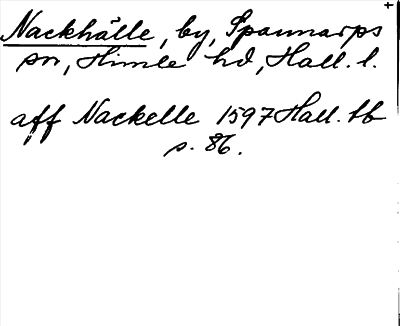 Nackhälle, by, Spannarps
sn, Himle hd, Hall. l.
aff Nackelle 1597 Hall. tb
s. 86.